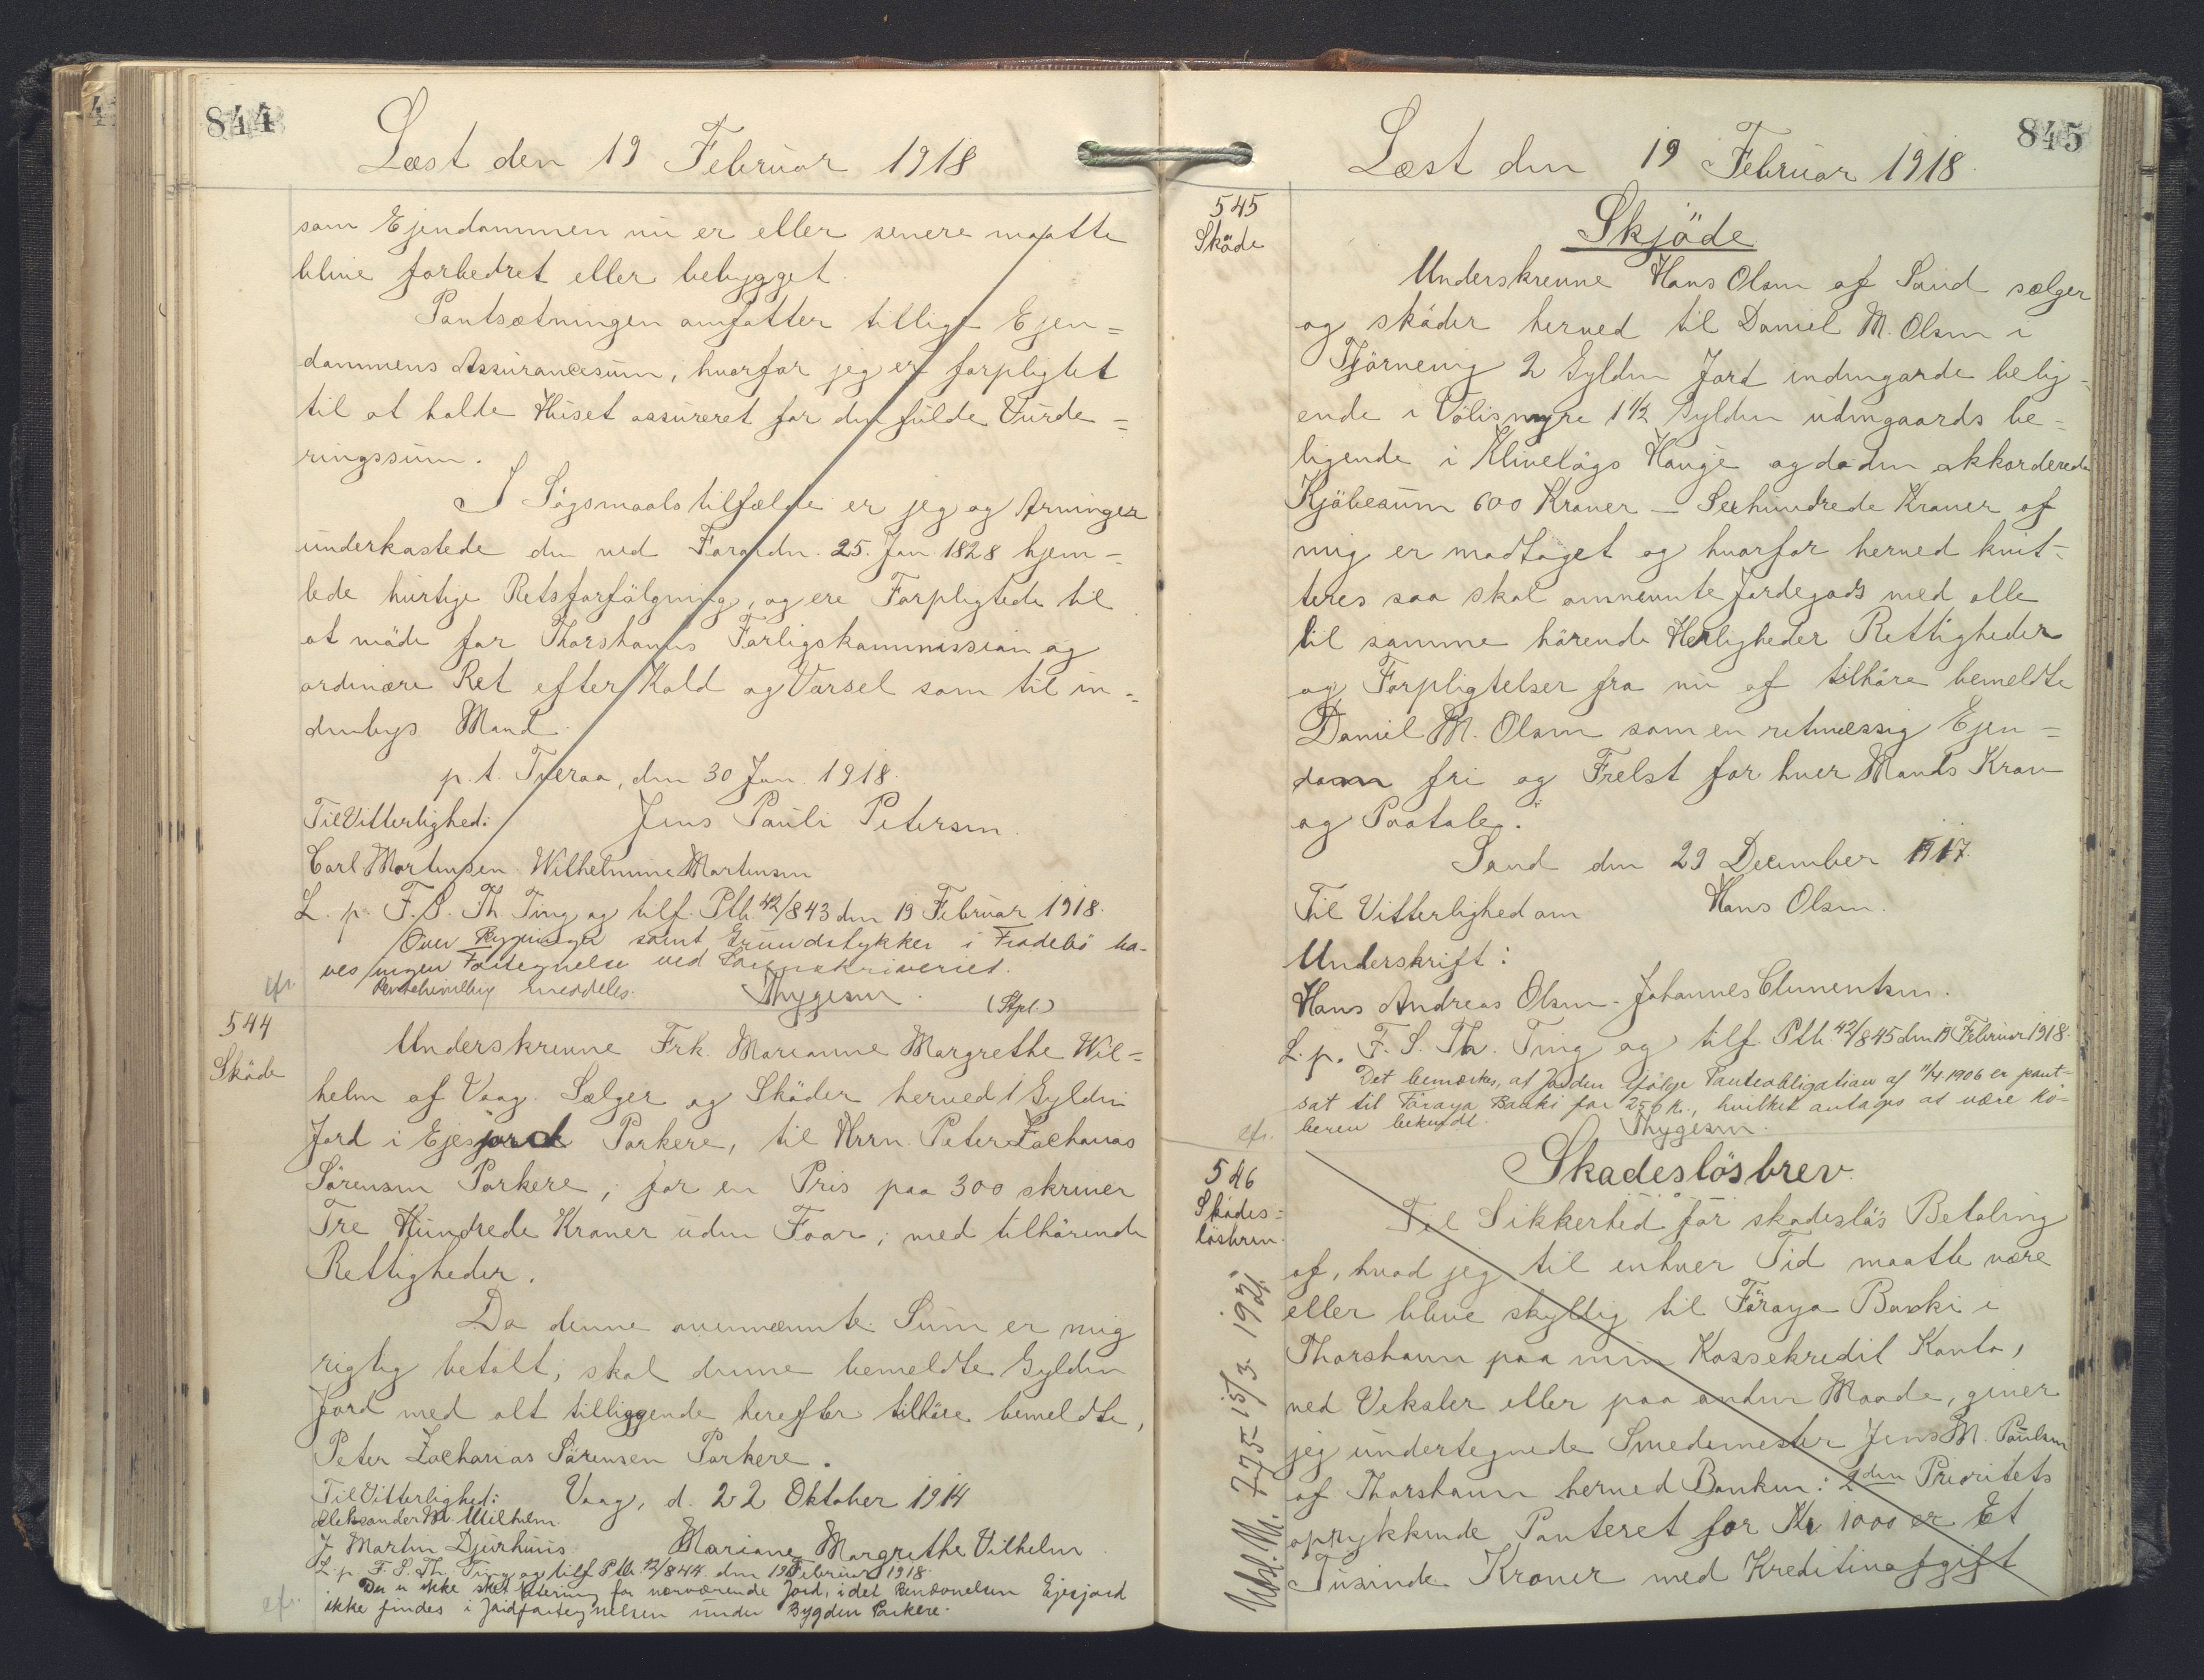 844
Læst den 19 Februar 1918
som Ejendommen nu er eller senere maatte
blive forbedret eller bebygget.
Pantsætningen omfatter tillige Ejen=
dommens Assurancesum, hvorfor jeg er forpligtet
til at holde Huset assureret for den fulde Vurde=
ringssum.
I Søgsmaalstilfælde er jeg og Arvinger
underkastede den ved Forordn. 25. Jan 1828 hjem-
lede hurtige Retsforfölgning, og ere Forpligtede til
at möde for Thorshavns Forligskommission og
ordinære Ret efter Kald og Varsel som til in-
denbys Mand.
p.t. Tveraa, den 30 Jan. 1918.
Til Vitterlighed: Jens Pauli Petersen.
Carl Mortensen Wilhelmine Mortensen
L. p. F. S. Th. Ting og tilf. Ptb. 42/843 den 19 Februar 1918.
Over Bygninger samt Grundstykker i Frodebö ha-
ves ingen Fortegnelse ved Sorenskriveriet.
meddeles. Thygesen. (Stpl.)
cfr.
544
Sköde
Underskrevne Frk. Marianne Margrethe Wil=
helm af Vaag. Sælger og Sköder herved 1 Gylden
Jord i Ejesjord Porkere, til Hrrn. Peter Zacharias
Sörensen Porkere, for en Pris paa 300 skriver
Tre Hundrede Kroner uden Faar, med tilhörende
Rettigheder.
Da denne ovennævnte Sum er mig
rigtig betalt, skal denne bemeldte Gylden
Jord med alt tilliggende herefter tilhöre bemeldte,
Peter Zacharias Sörensen Porkere.
Til Vitterlighed: Vaag, d. 22 Oktober 1914
Aleksander M. Wilhelm.
J. Martin Djurhuus. Mariane Margrethe Vilhelm
L. p. F. S. Th. Ting og tilf. Ptb. 42/844 den 19 Februar 1918.
Der er ikke sket Notering for nærværende Jord, idet Benævnelsen Ejesjord
ikke findes i Jordfortegnelsen under Bygden Porkere.
cfr.
845
Læst den 19 Februar 1918.
545
Sköde
Skjöde
Underskrevne Hans Olsen af Sand sælger
og sköder herved til Daniel M. Olsen i
Tjörnevig 2 Gylden Jord indengarde belig-
ende i Völismyre 1 1/2 Gylden udengaards be-
ligende i Klivelögs Hauge og da den akkorderede
Kjöbesum 600 Kroner – Sexhundrede Kroner af
mig er modtaget og hvorfor herved kvit-
teres saa skal omnevnte Jordegods med alle
til samme hörende Herligheder Rettigheder
og Forpligtelser fra nu af tilhöre bemeldte
Daniel M. Olsen som en retmæssig Ejen=
dom fri og Frelst for hver Mands Krav
og Paatale.
Sand den 29 December 1917.
Til Vitterlighed om Hans Olsen.
Underskrift:
Hans Andreas Olsen – Johannes Clementsen.
L. p. F. S. Th. Ting og tilf. Ptb. 42/845 den 19 Februar 1918.
Det bemærkes, at Jorden ifölge Panteobligation af 11/4. 1906 er pant-
sat til Föroya Banki for 250 K., hvilket antages at være Kö-
beren bekendt. Thygesen.
cfr.
546
Skades=
lösbrev.
Skadeslösbrev.
Til Sikkerhed for skadeslös Betaling
af, hvad jeg til enhver Tid maatte være
eller blive skyldig til Föroya Banki i
Thorshavn paa min Kassekredit Konto,
ved Veksler eller paa anden Maade, giver
jeg undertegnede Smedemester Jens M. Poulsen
af Thorshavn herved Banken: 2den Prioritets
oprykkende Panteret for Kr 1000 er Et
Tusinde Kroner med Kreditinafgift
Udsl. M. 775 – 15/3. 1921.